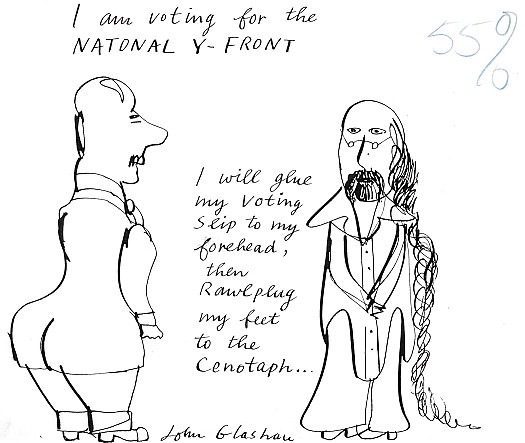 I am voting for the
NATONAL Y-FRONT
55%
I will glue
my voting
slip to my
forehead,
then
Rawlplug
my feet
to the
Cenotaph...
John Glashan